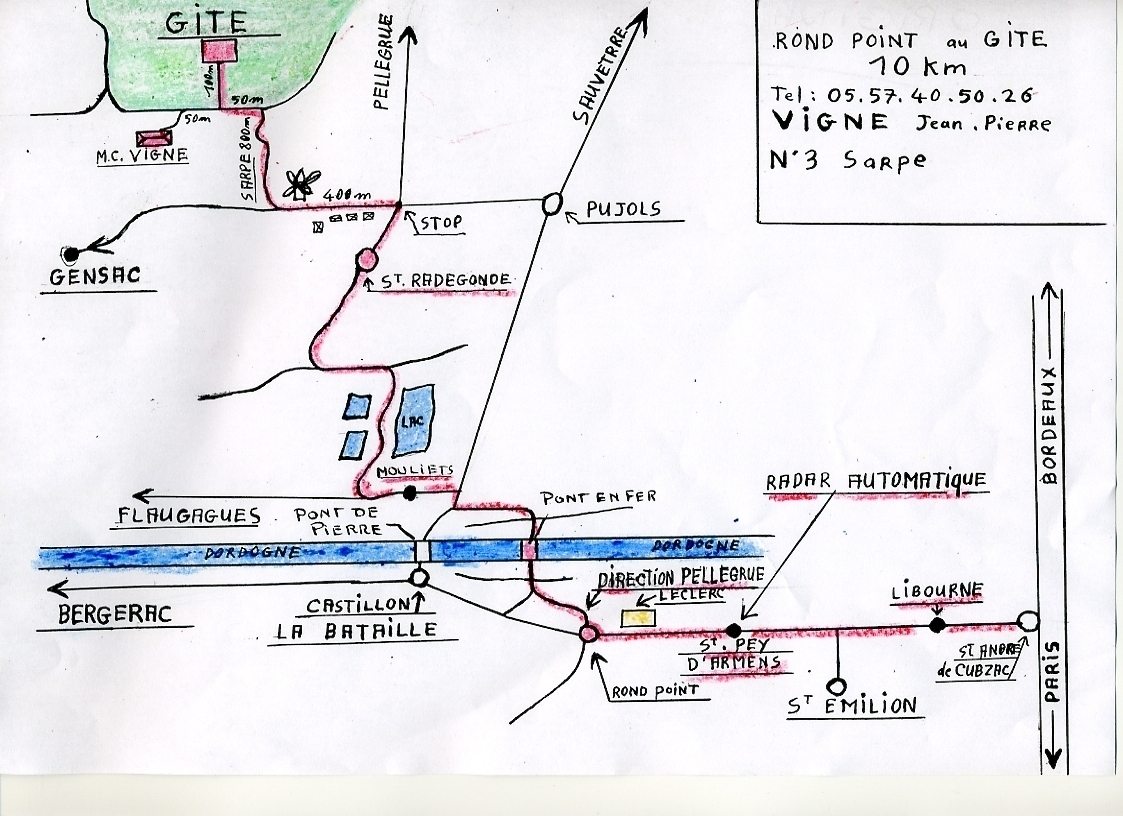 GiTE
100m
50m
50m
M.C. ViGNE
SARPE 800m
400m
PELLEGRUE
SAUVETRRE
ROND POINT au GiTE
10 Km
Tel: 05.57.40.50.26
ViGNE Jean.Pierre
N°3 Sarpe
STOP
PUJOLS
GENSAC
ST. RADEGONDE
LAC
MOULiETS
FLAUGAGUES
PONT DE
PiERRE
PONT EN FER
RADAR AUTOMATiQUE
BORDEAUX
DORDOGNE
DORDOGNE
BERGERAC
CASTiLLON
LA BATAiLLE
DiRECTiON PELLEGRUE
LECLERC
LiBOURNE
ST. PEY
D'ARMENS
ST ANDRE
de CUBZAC
ROND POiNT
ST EMiLiON
PARiS